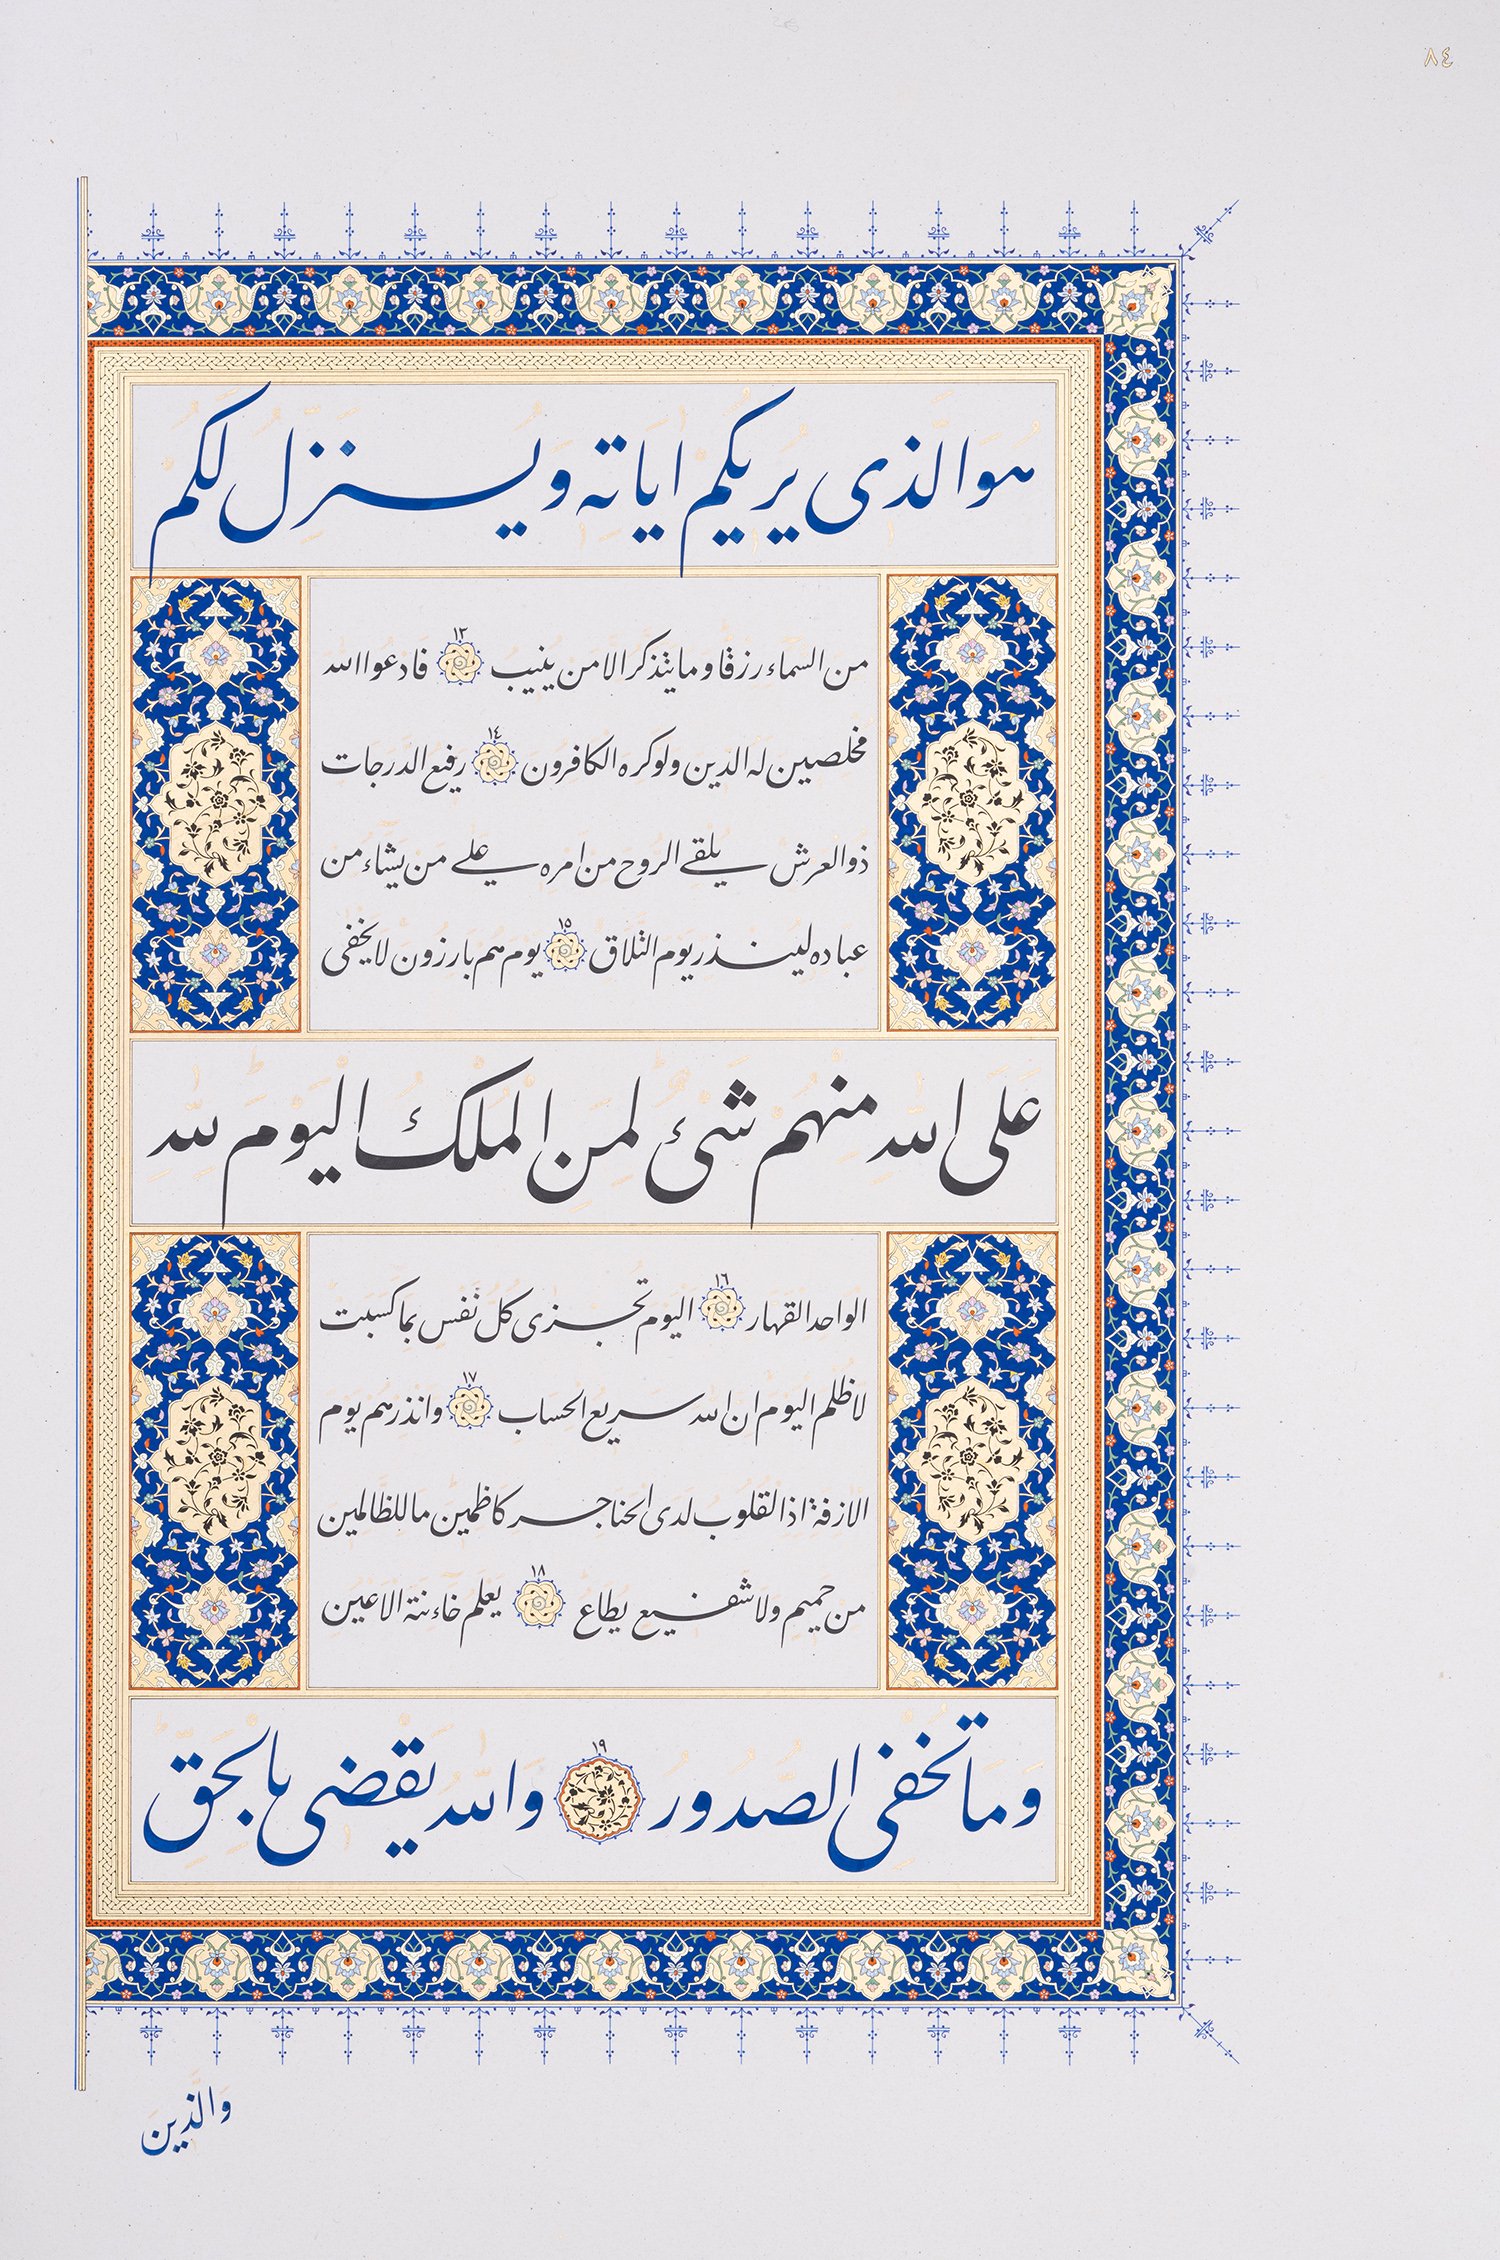 ٨٤
هُوَ الَّذی یُریکُم ایَاتِه وَ یُنَزِّل لَکُم
١٣
من السمآء رزقا و ما یتذکر الا من ینیب فادعوا الله
١٤
مخلصین له الدین ولو کره الکافرون رفیع الدرجات
ذو العرش یلقے الروح من امره علے من یشاء من
١٥
عباده لینذر یوم التلاق یوم هم بارزون لا یخفی
عَلَی الله مِنهُم شَیءٌ لِمَن المُلکُ الیَومَ لِله
١٦
الواحد القهار الیوم تجزی کل نفس بما کسبت
١٧
لا ظلم الیوم ان الله سریع الحساب و انذرهم یوم
الازفة اذ القلوب لدی الحناجر کاظمین ما للظالمین
١٨
من حمیم ولا شفیع یطاع یعلم خآءنة الاعین
١٩
وَ مَا تُخفی الصُّدُورُ وَ اللهُ یَقضی بِالحَقّ
وَالَّذینَ